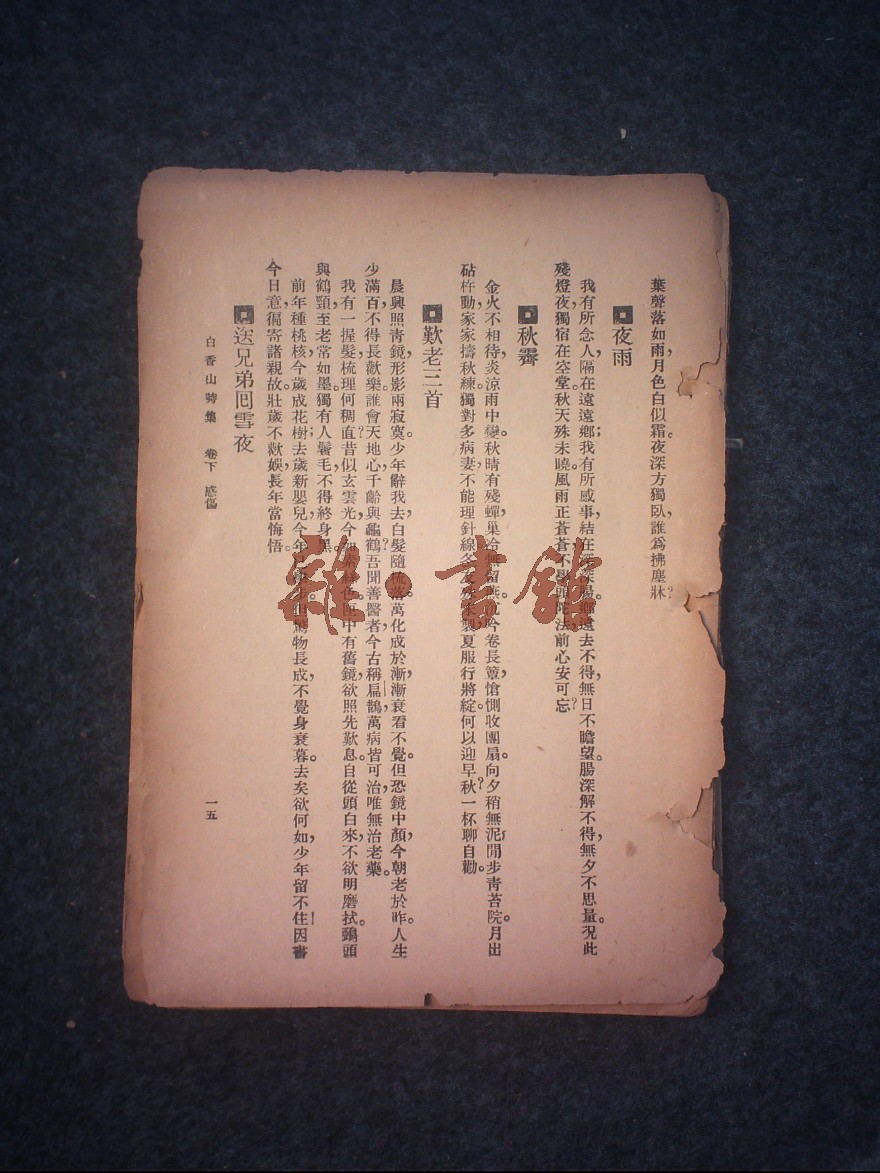 葉聲落如雨，月色白似霜。夜深方獨臥，誰爲拂塵牀？
夜雨
我有所念人，隔在遠遠鄉；我有所感事，結在深深腸。鄉遠去不得，無日不瞻望。腸深解不得，無夕不思量。況此
殘燈夜，獨宿在空堂。秋天殊未曉，風雨正蒼蒼。不學頭陀法，前心安可忘？
秋霽
金火不相待，炎涼雨中變。秋晴有殘蟬，巢冷無留燕。沉吟卷長簟，愴惻收團扇。向夕稍無泥，閒步青苔院。月出
砧杵動，家家擣秋練。獨對多病妻，不能理針線。冬衣殊未製，夏服行將綻。何以迎早秋？一杯聊自勸。
歎老三首
晨興照青鏡，形影兩寂寞。少年辭我去，白髮隨梳落。萬化成於漸，漸衰看不覺。但恐鏡中顏，今朝老於昨。人生
少滿百，不得長歡樂。誰會天地心？千齡與龜鶴。吾聞善醫者，今古稱扁鵲。萬病皆可治，唯無治老藥。
我有一握髮，梳理何稠直？昔似玄雲光，今如素絲色。匣中有舊鏡，欲照先歎息。自從頭白來，不欲明磨拭。鵶頭
與鶴頸，至老常如墨。獨有人鬢毛，不得終身黑。
前年種桃核，今歲成花樹；去歲新嬰兒，今年已學步。但驚物長成，不覺身衰暮。去矣欲何如，少年留不住！因書
今日意，徧寄諸親故。壯歲不歡娛，長年當悔悟。
送兄弟回雪夜
白香山詩集　卷下　感傷
一五
雜·書館